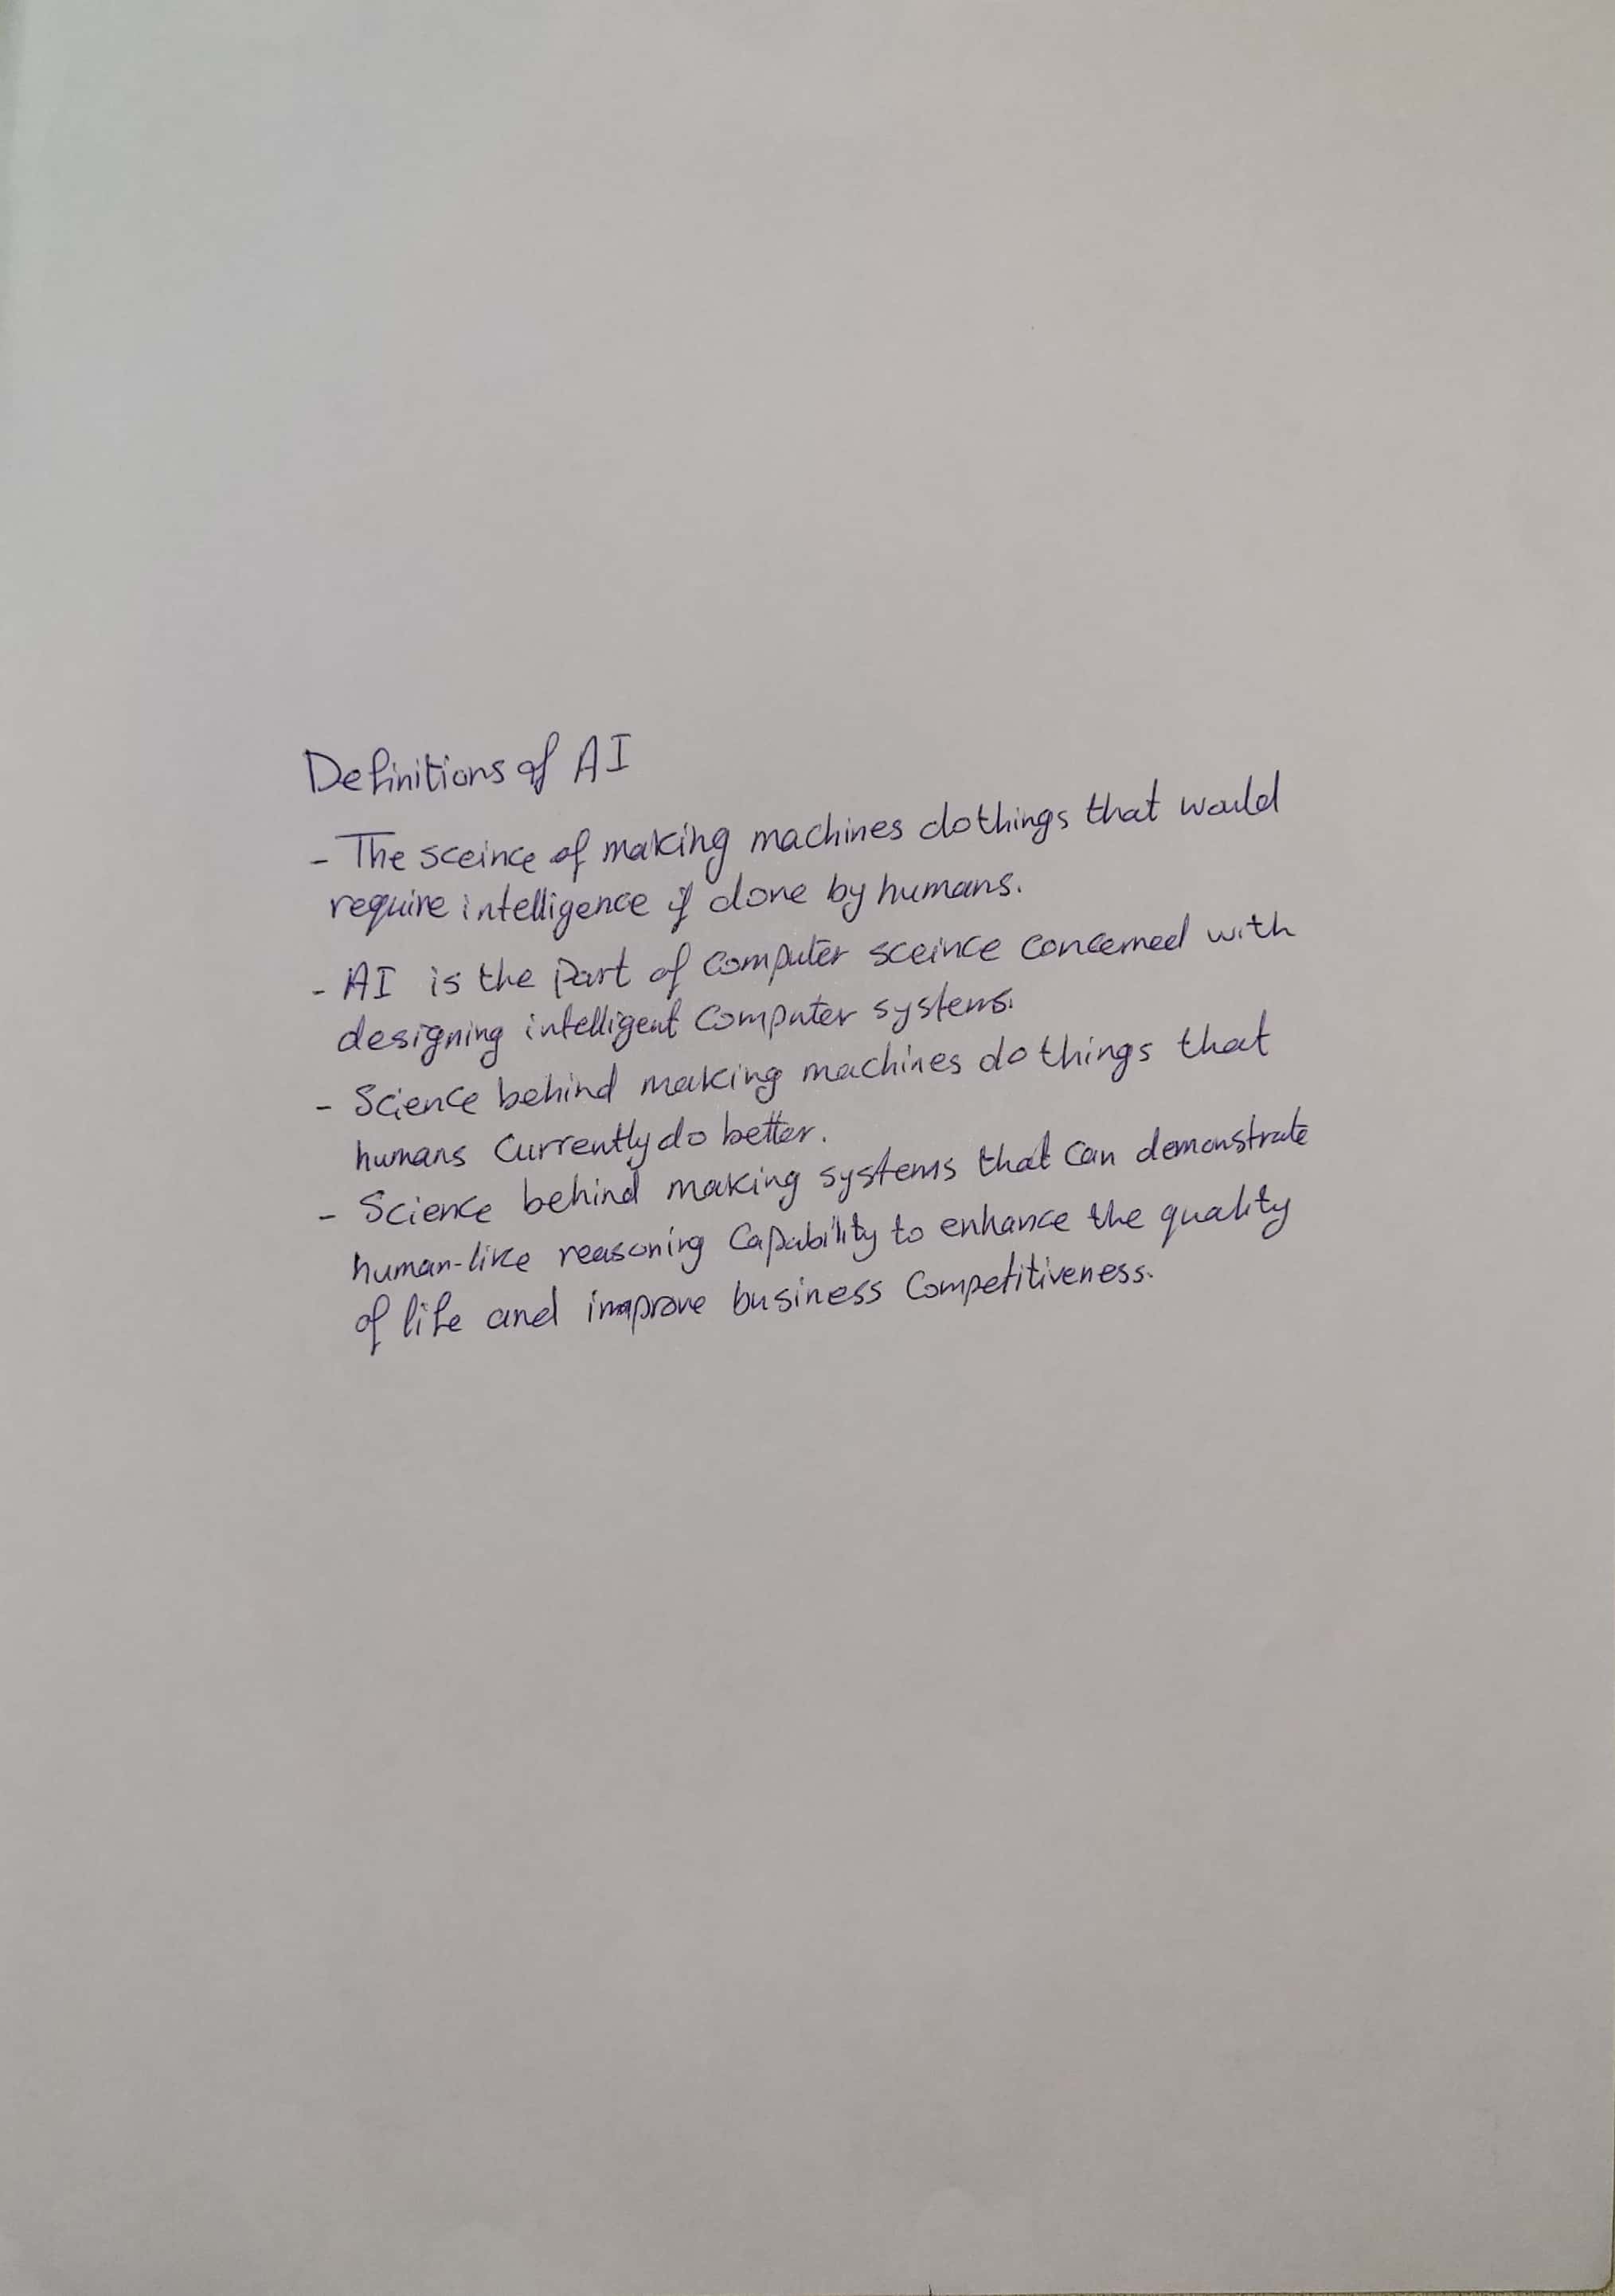 Definitions of AI
- The sceince of making machines do things that would
require intelligence if done by humans.
- AI is the part of computer sceince concerned with
designing intelligent computer systems.
- Science behind making machines do things that
humans currently do better.
- Science behind making systems that can demonstrate
human-like reasoning capability to enhance the quality
of life and improve business competitiveness.